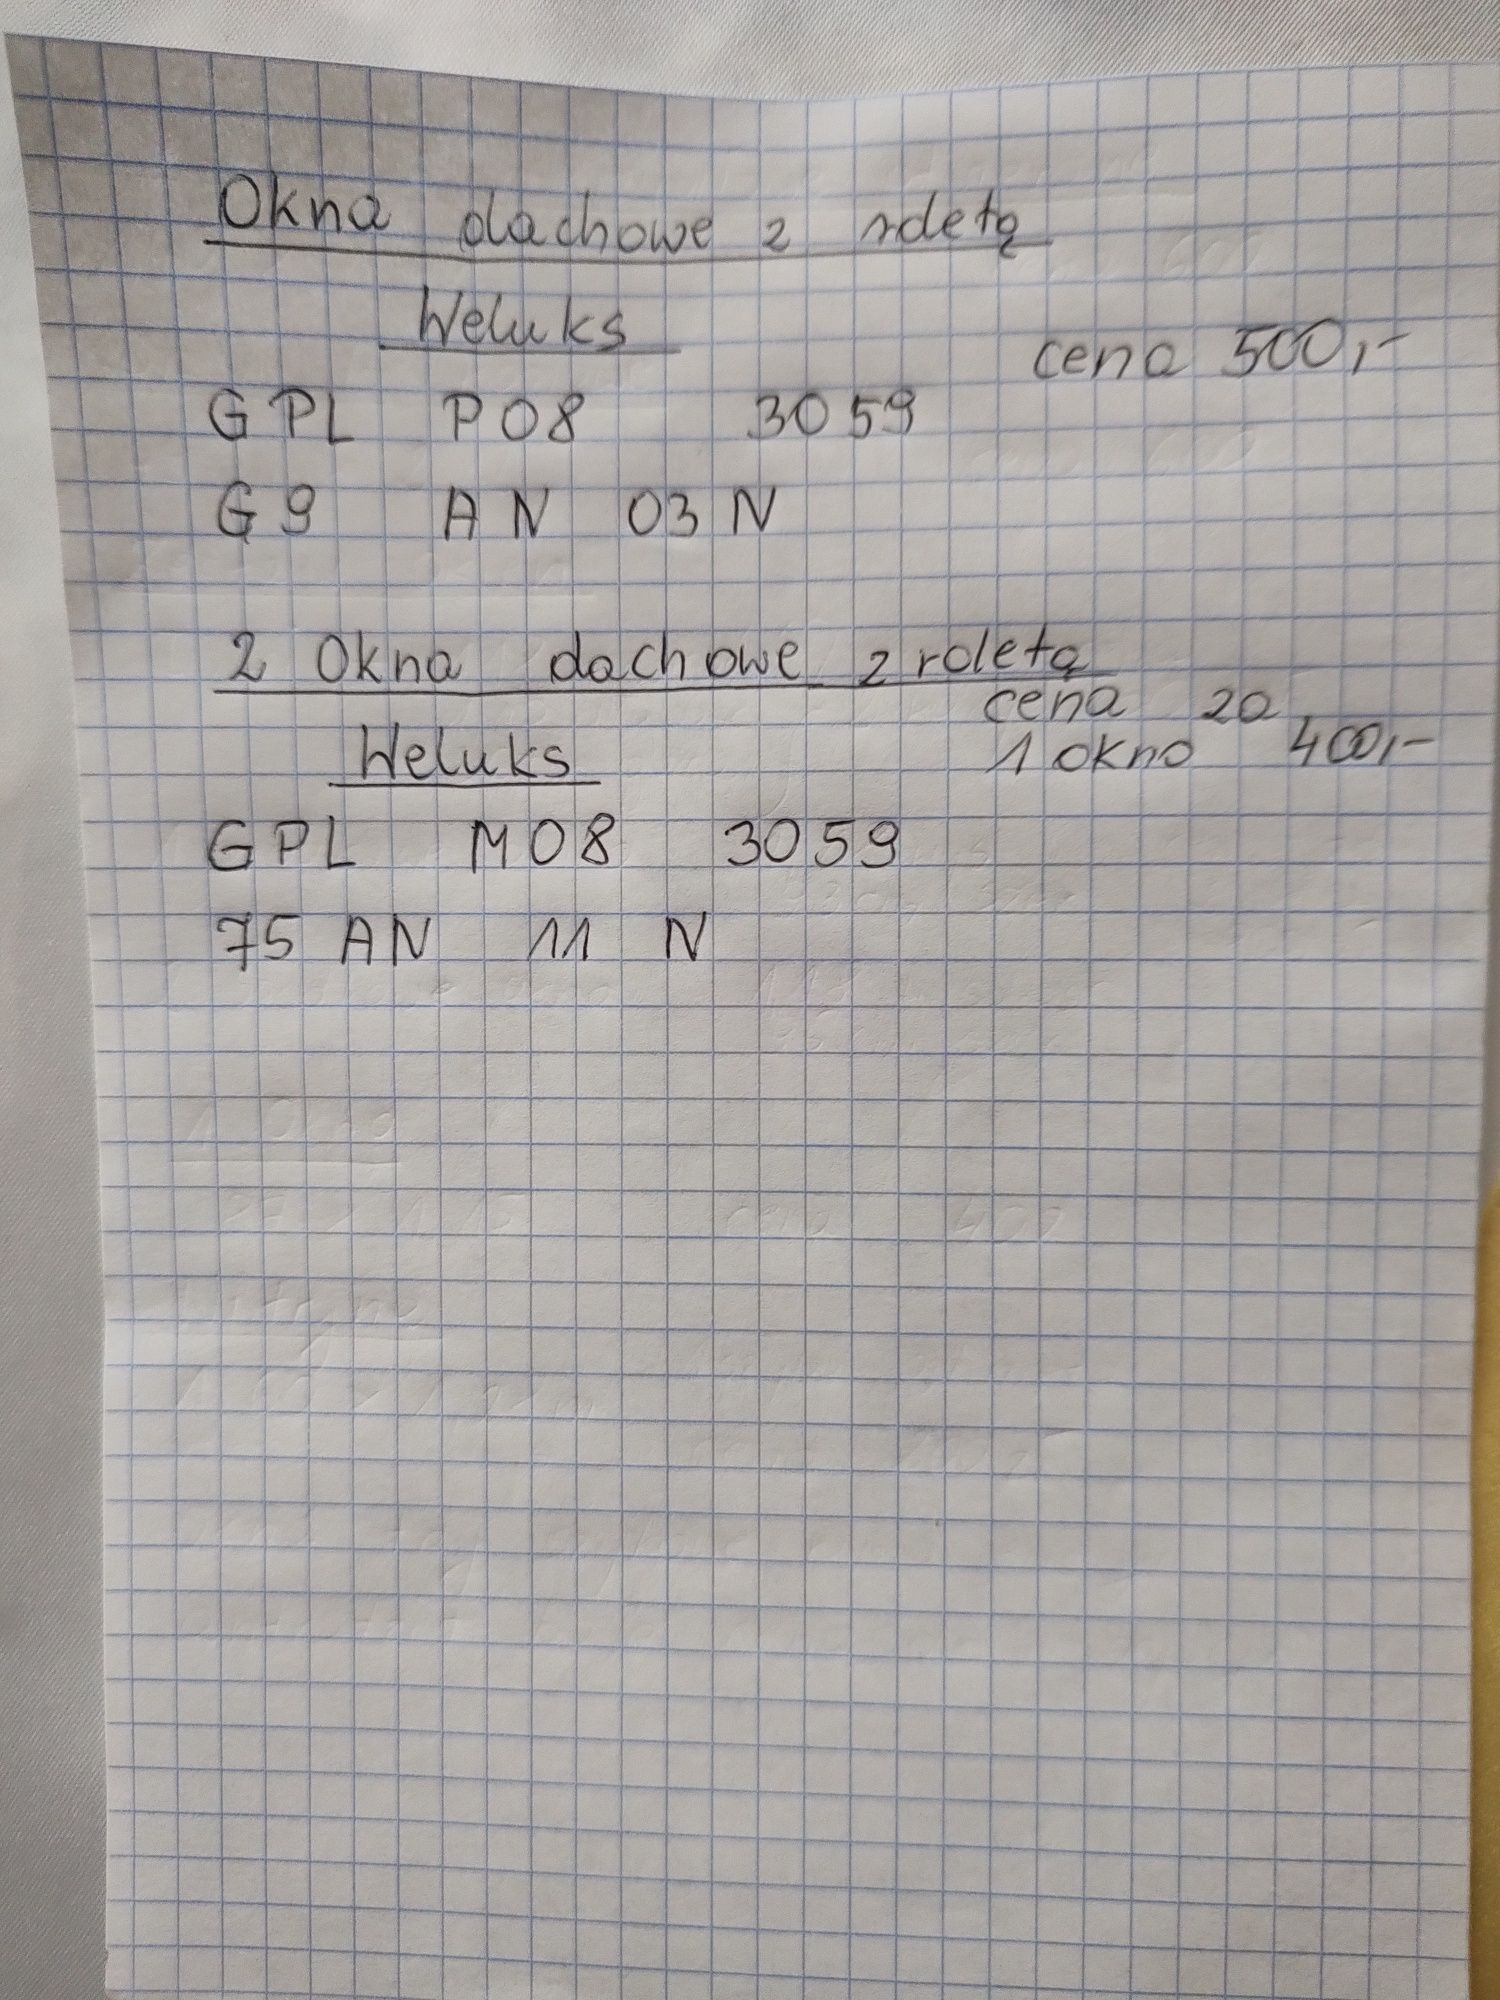 Okna dachowe z roletą
Weluks
cena 500,-
GPL P08 3059
G9 AN 03 N
2 Okna dachowe z roletą
cena za
Weluks
1 okno 400,-
GPL M08 3059
75 AN 11 N